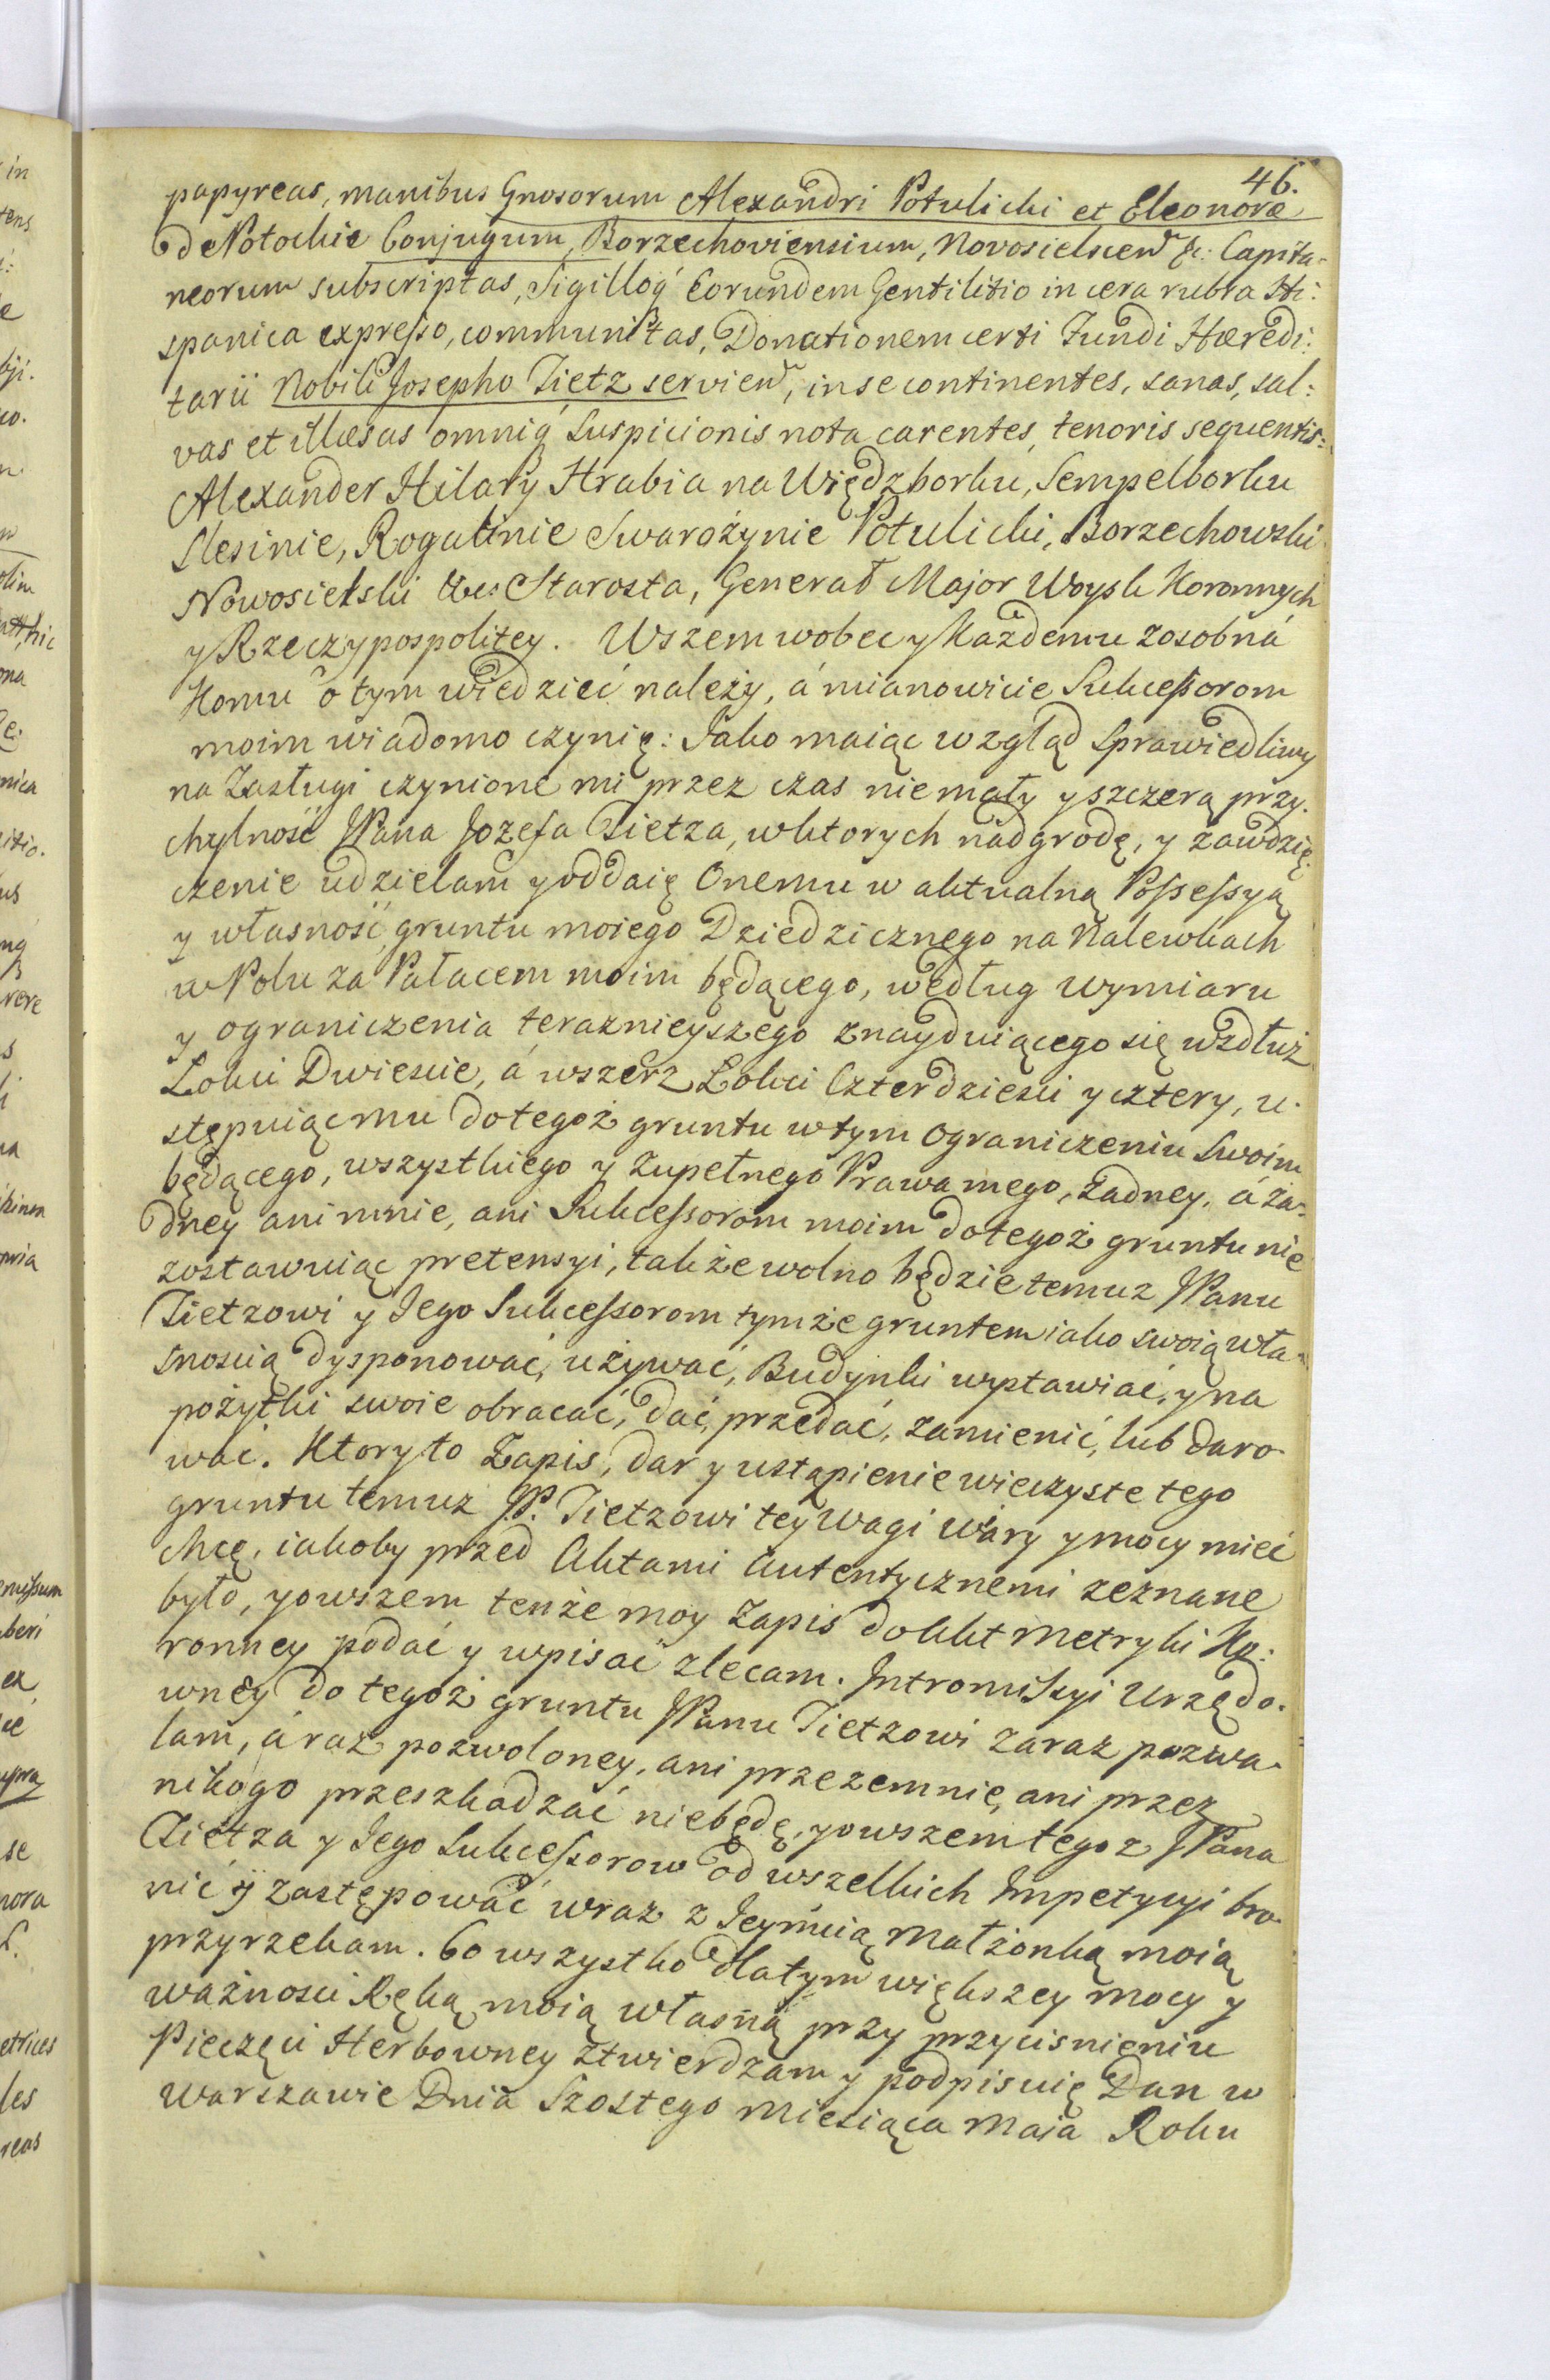 46.
papyreas, manibus Gnosorum Alexandri Potulicki et Eleonoræ
de Potockie Conjugum, Borzechoviensium, Novosielscen &c: Capita-
neorum subscriptas, Sigilloq́ Eorundem Gentilitio in cera rubra Hi:
spanica expresso, communitas, Donationem certi Fundi Hæredi:
tarii Nobili Josepho Tietz servien, in se continentes, sanas, sal:
vas et illæsas omniq́ Suspicionis nota carentes, tenoris sequentis:
Alexander Hilary Hrabia na Więdzborku, Sempelborku
Slesinie, Rogalinie Swarożynie Potulicki, Borzechowski
Nowosielski &c: Starosta, Generał Major Woysk Koronnych
y Rzeczypospolitey. Wszem wobec y Każdemu zosobná
Komu o tym wiedzieć należy, á mianowicie Sukcessorom
moim wiadomo czynię: Jako maiąc wzgląd Sprawiedliwy
na Zasługi czynione mi przez czas niemały y szczerą przy-
chylność JPana Jozefa Tietza, wktorych nadgrodę, y zawdzię:
czenie udzielam y oddaię Onemu w aktualną Possessyą
y własność gruntu moiego Dziedzicznego na Nalewkach
w Polu za Pałacem moim będącego, według wymiaru
y ograniczenia teraznieyszego znayduiącego się wzdłuż
Łokci Dwiescie, á wszerz Łokci Czterdziesci y cztery, u-
stępuiąc mu dotegoż gruntu wtym ograniczeniu swoim
będącego, wszystkiego y zupełnego Prawa mego, żadney, á ża-
dney ani mnie, ani Sukcessorom moim dotegoż gruntu nie
zostawuiąc pretensyi, tak że wolno będzie temuz JPanu
Tietzowi y Jego Sukcessorom tymże gruntem iako swoią wła-
snoscią dysponować, używać, Budynki wystawiać, y na
pożytki swoie obracać, dać, przedać, zamienić, lub daro-
wać. Ktory to Zapis, dar y ustąpienie wieczyste tego
gruntu temuz JP. Tietzowi tey wagi wiary y mocy mieć
chcę, iakoby przed Aktami Autentycznemi zeznane
było, y owszem tenże moy Zapis do Akt Metryki Ko:
ronney podać y wpisać zlecam. Intromissyi Urzędo-
wney do tegoż gruntu JPanu Tietzowi zaraz pozwa-
lam, á raz pozwoloney, ani przezemnie, ani przez
nikogo przeszkadzać niebędę, y owszem tegoz JPana
Tietza y Jego Sukcessorow od wszelkich Impetycyi bro-
nić y zastępować wraz z Jeymcią Małżonką moią
przyrzekam. Co wszystko dla tym większey mocy y
ważnosci Ręką moią własną przy przycisnieniu
Pieczęci Herbowney ztwierdzam y podpisuię Dan w
Warszawie Dnia Szostego Miesiąca Maia Roku